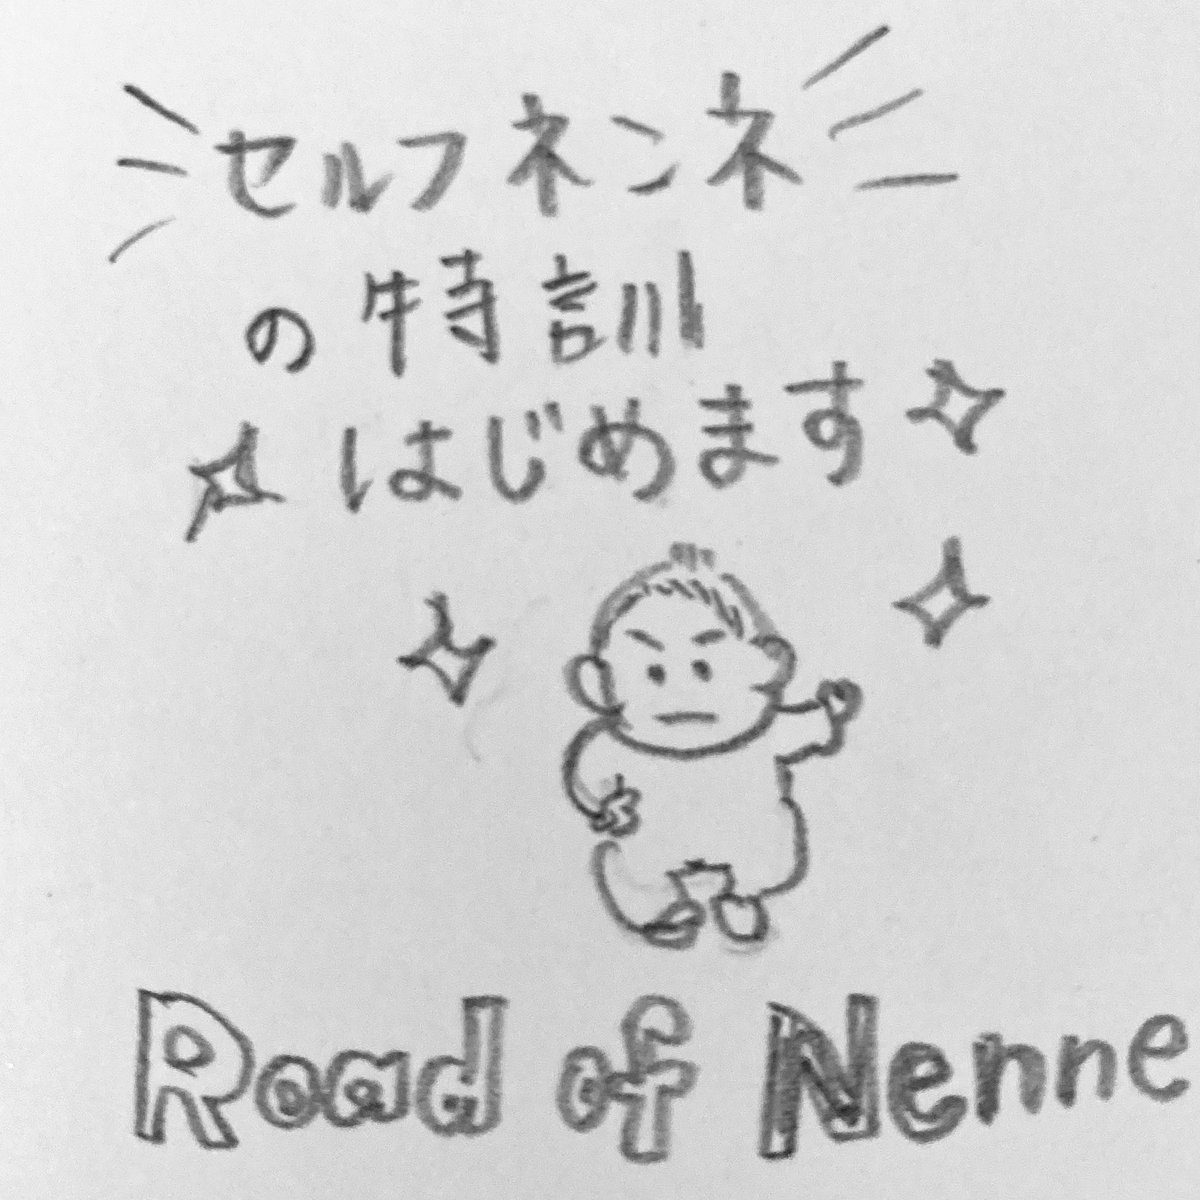 セルフネンネ
の特訓
はじめます
Road of Nenne